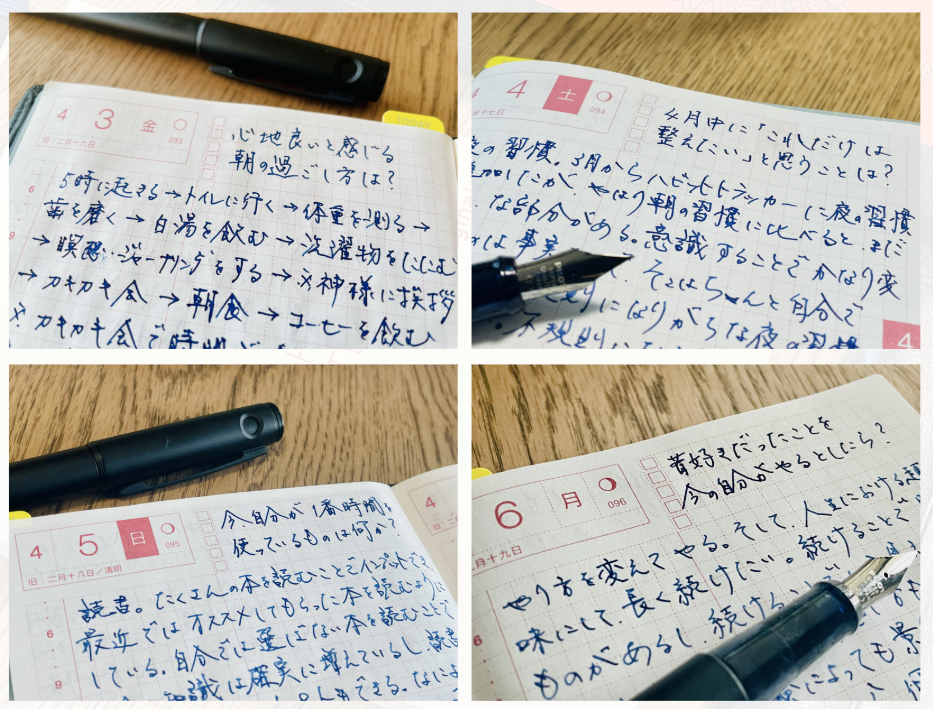 TODAY
4 3 金
093
旧:二月十六日
心地良いと感じる
朝の過ごし方は?
6
5時に起きる→トイレに行く→体重を測る→
歯を磨く→白湯を飲む→洗濯物をたたむ
9
→瞑想・ジャーナリングをする→※神様に挨拶
→カキカキ会→朝食→コーヒーを飲む
※カキカキ会で時間
4 土
094
月十七日
4月中に「これだけは
整えたい」と思うことは?
の習慣。3月からハビットトラッカーに夜の習慣
追加したが、やはり朝の習慣に比べると、まだ
な部分がある。意識することでかなり変
は事実
そこはちゃんと自分で
になりがちな夜の習慣
4
4 5 日
095
旧:二月十八日/清明
今自分が1番時間を
使っているものは何か?
4
読書。たくさんの本を読むことでインプットでき
6
最近ではオススメしてもらった本を読むように
している。自分では選ばない本を読むことで
9
知識は確実に増えているし、
できる。なによ
6 月
096
月十九日
昔好きだったことを
今の自分がやるとしたら?
やり方を変えてやる。そして、人生における
味にして、長く続けたい。続けることで
6
ものがあるし、続ける
によっても景